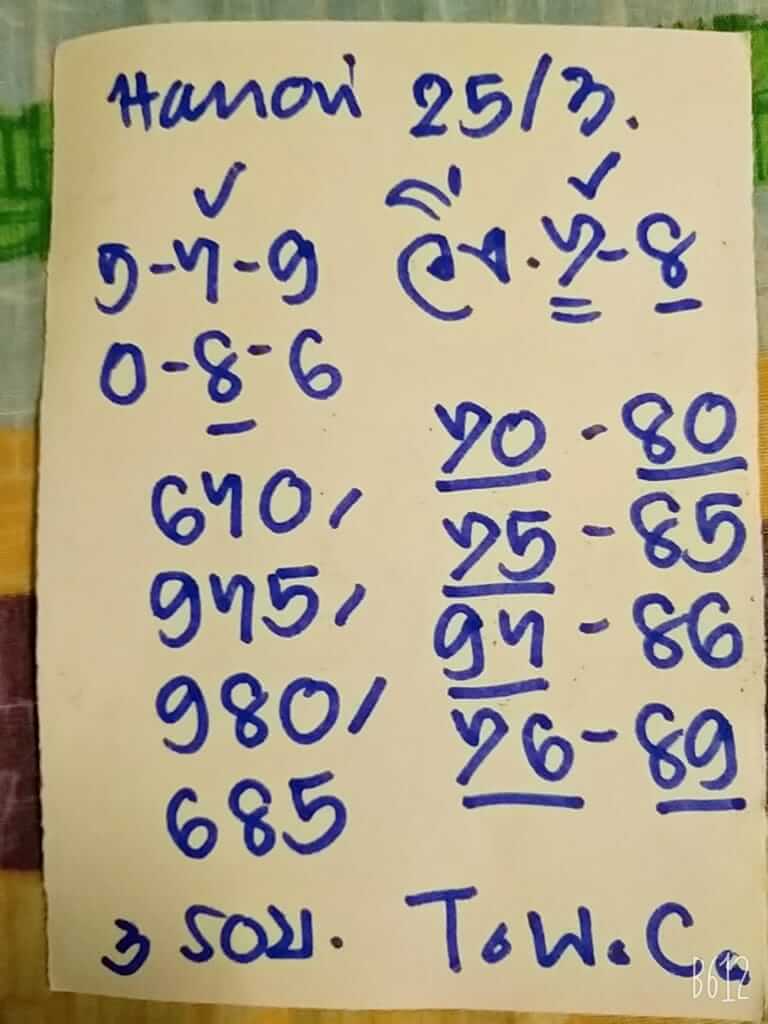 Hanoi 25/3.
5-7-9 วิ่ง. 7-8
0-8-6
70 - 80
670/
75 - 85
975/
97 - 86
980/
76 - 89
685
3 รอบ. T.W.C.
B612